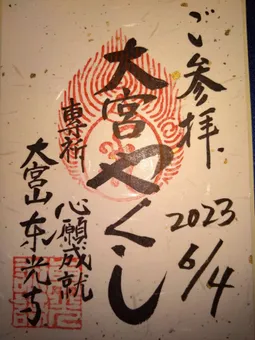 ご参拝
2023
6/4
大宮やくし
専祈
心願成就
大宮山东光寺